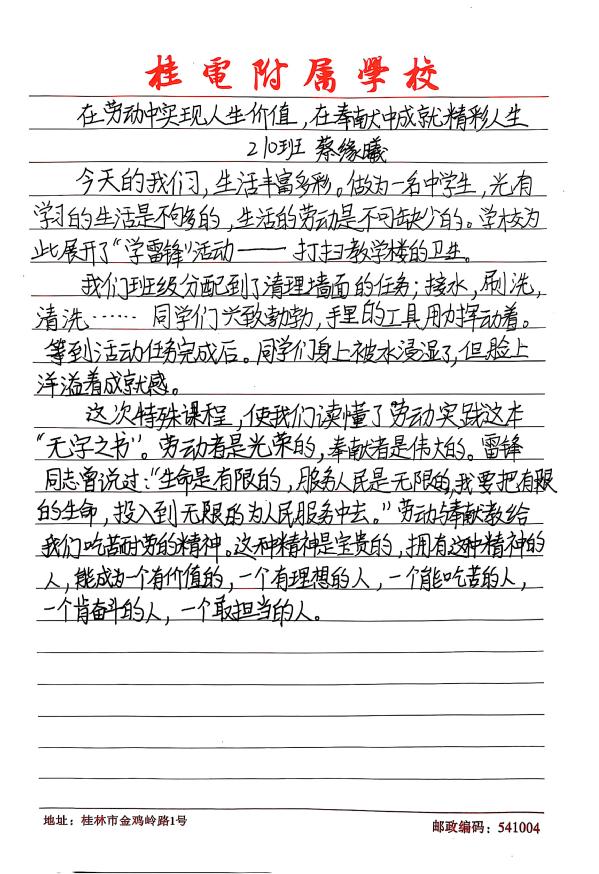 桂電附属學校
在劳动中实现人生价值，在奉献中成就精彩人生
210班 蔡缘曦
今天的我们，生活丰富多彩。做为一名中学生，光有
学习的生活是不够的，生活的劳动是不可缺少的。学校为
此展开了“学雷锋”活动——打扫教学楼的卫生。
我们班级分配到了清理墙面的任务；接水，刷洗，
清洗……同学们兴致勃勃，手里的工具用力挥动着。
等到活动任务完成后。同学们身上被水浸湿了，但脸上
洋溢着成就感。
这次特殊课程，使我们读懂了劳动实践这本
“无字之书”。劳动者是光荣的，奉献者是伟大的。雷锋
同志曾说过：“生命是有限的，服务人民是无限的，我要把有限
的生命，投入到无限的为人民服务中去。”劳动与奉献教给
我们吃苦耐劳的精神。这种精神是宝贵的，拥有这种精神的
人，能成为一个有价值的，一个有理想的人，一个能吃苦的人，
一个肯奋斗的人，一个敢担当的人。
地址：桂林市金鸡岭路1号
邮政编码：541004